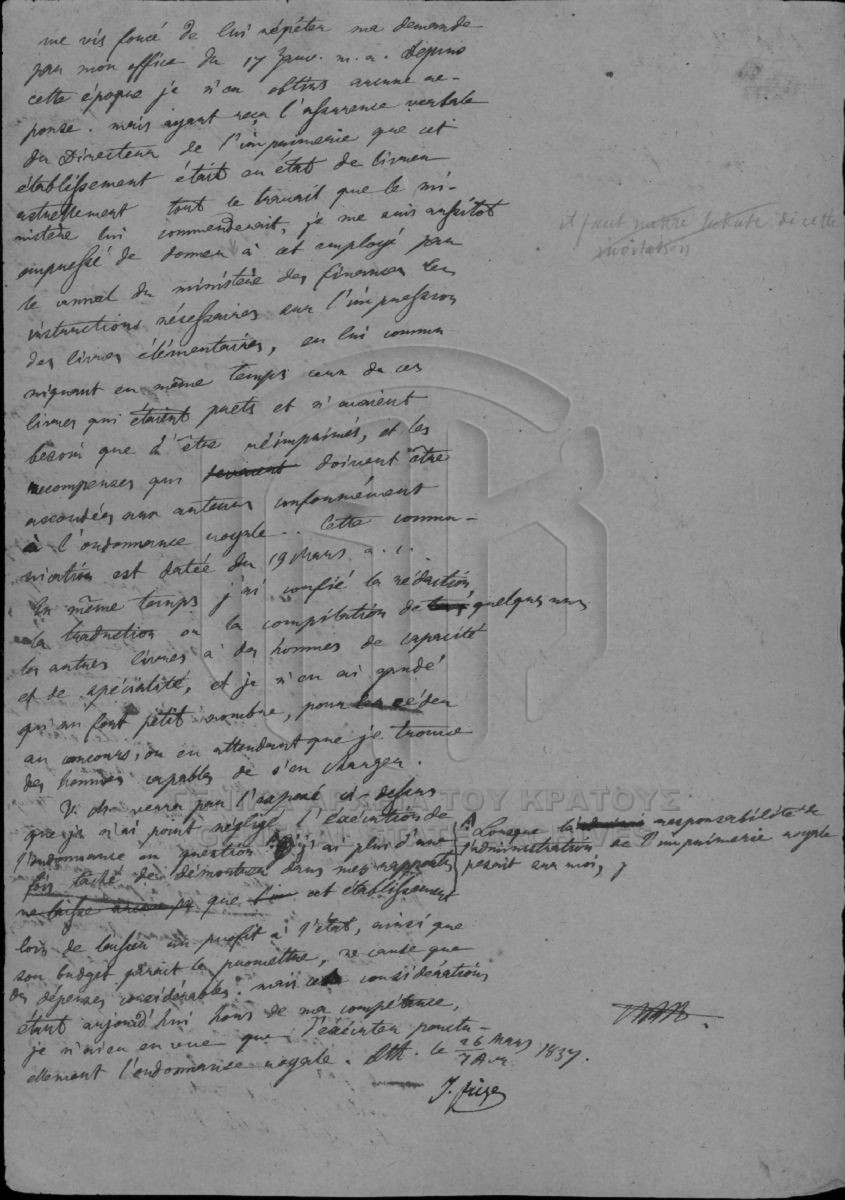 me vis forcé de lui répéter ma demande
par mon office du 17 Janv. m. a. Depuis
cette époque je n'en obtins aucune ré-
ponse. mais ayant reçu l'assurence verbale
du Directeur de l'imprimerie que cet
établissement était en état de livrer
actuellement tout le travail que le mi-
nistère lui commenderait, je me suis aussitôt
empressé de donner à cet employé par
le canal du ministère des finances les
instructions nécessaires sur l'impression
des livres élémentaires, en lui commu-
niquant en même temps ceux de ces
livres qui étaient prets et n'avaient
besoin que d'être réimprimés, et les
recompenses qui devraient doivent être
accordées aux auteurs conformément
à l'ordonnance royale. Cette commu-
nication est datée du 19 Mars a. c.
En même temps j'ai confié la rédaction
la traduction ou la compilation de quelques uns
les autres livres à des hommes de capacité
et de spécialité, et je n'en ai gardé
qu'un fort petit nombre, pour les céder
au concours, ou en attendant que je trouve
des hommes capables de s'en charger.
V. verra par l'exposé ci-dessus
que je n'ai point négligé l'exécution de
l'ordonnance en question. j'ai plus d'une
fois taché de démontrer dans mes rapports
ne laisse aucun que cet établissement
loin de laisser un profit à l'état, ainsi que
son budget parait le promettre, ne cause que
des dépenses considérables. mais considérations
étant aujourd'hui hors de ma compétence,
je n'ai en vue que d'exécuter ponctu-
ellement l'ordonnance royale. Ath. le 26 Mars / 7 Avr. 1837.
il faut mettre de cette
Lorsque la responsabilité de
l'administration de l'imprimerie royale
pesait sur moi,
ΓΕΝΙΚΑ ΑΡΧΕΙΑ ΤΟΥ ΚΡΑΤΟΥΣ
GENERAL STATE ARCHIVES